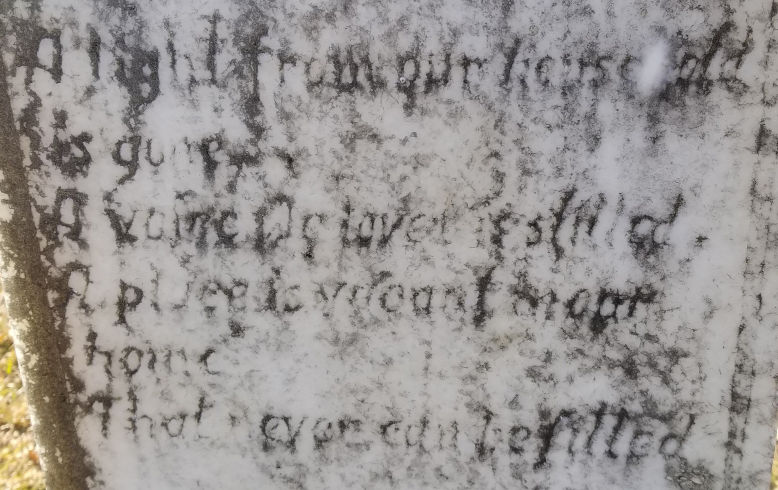 A light from our household
is gone,
A voice we loved is stilled.
A place is vacant in our
home
That never can be filled